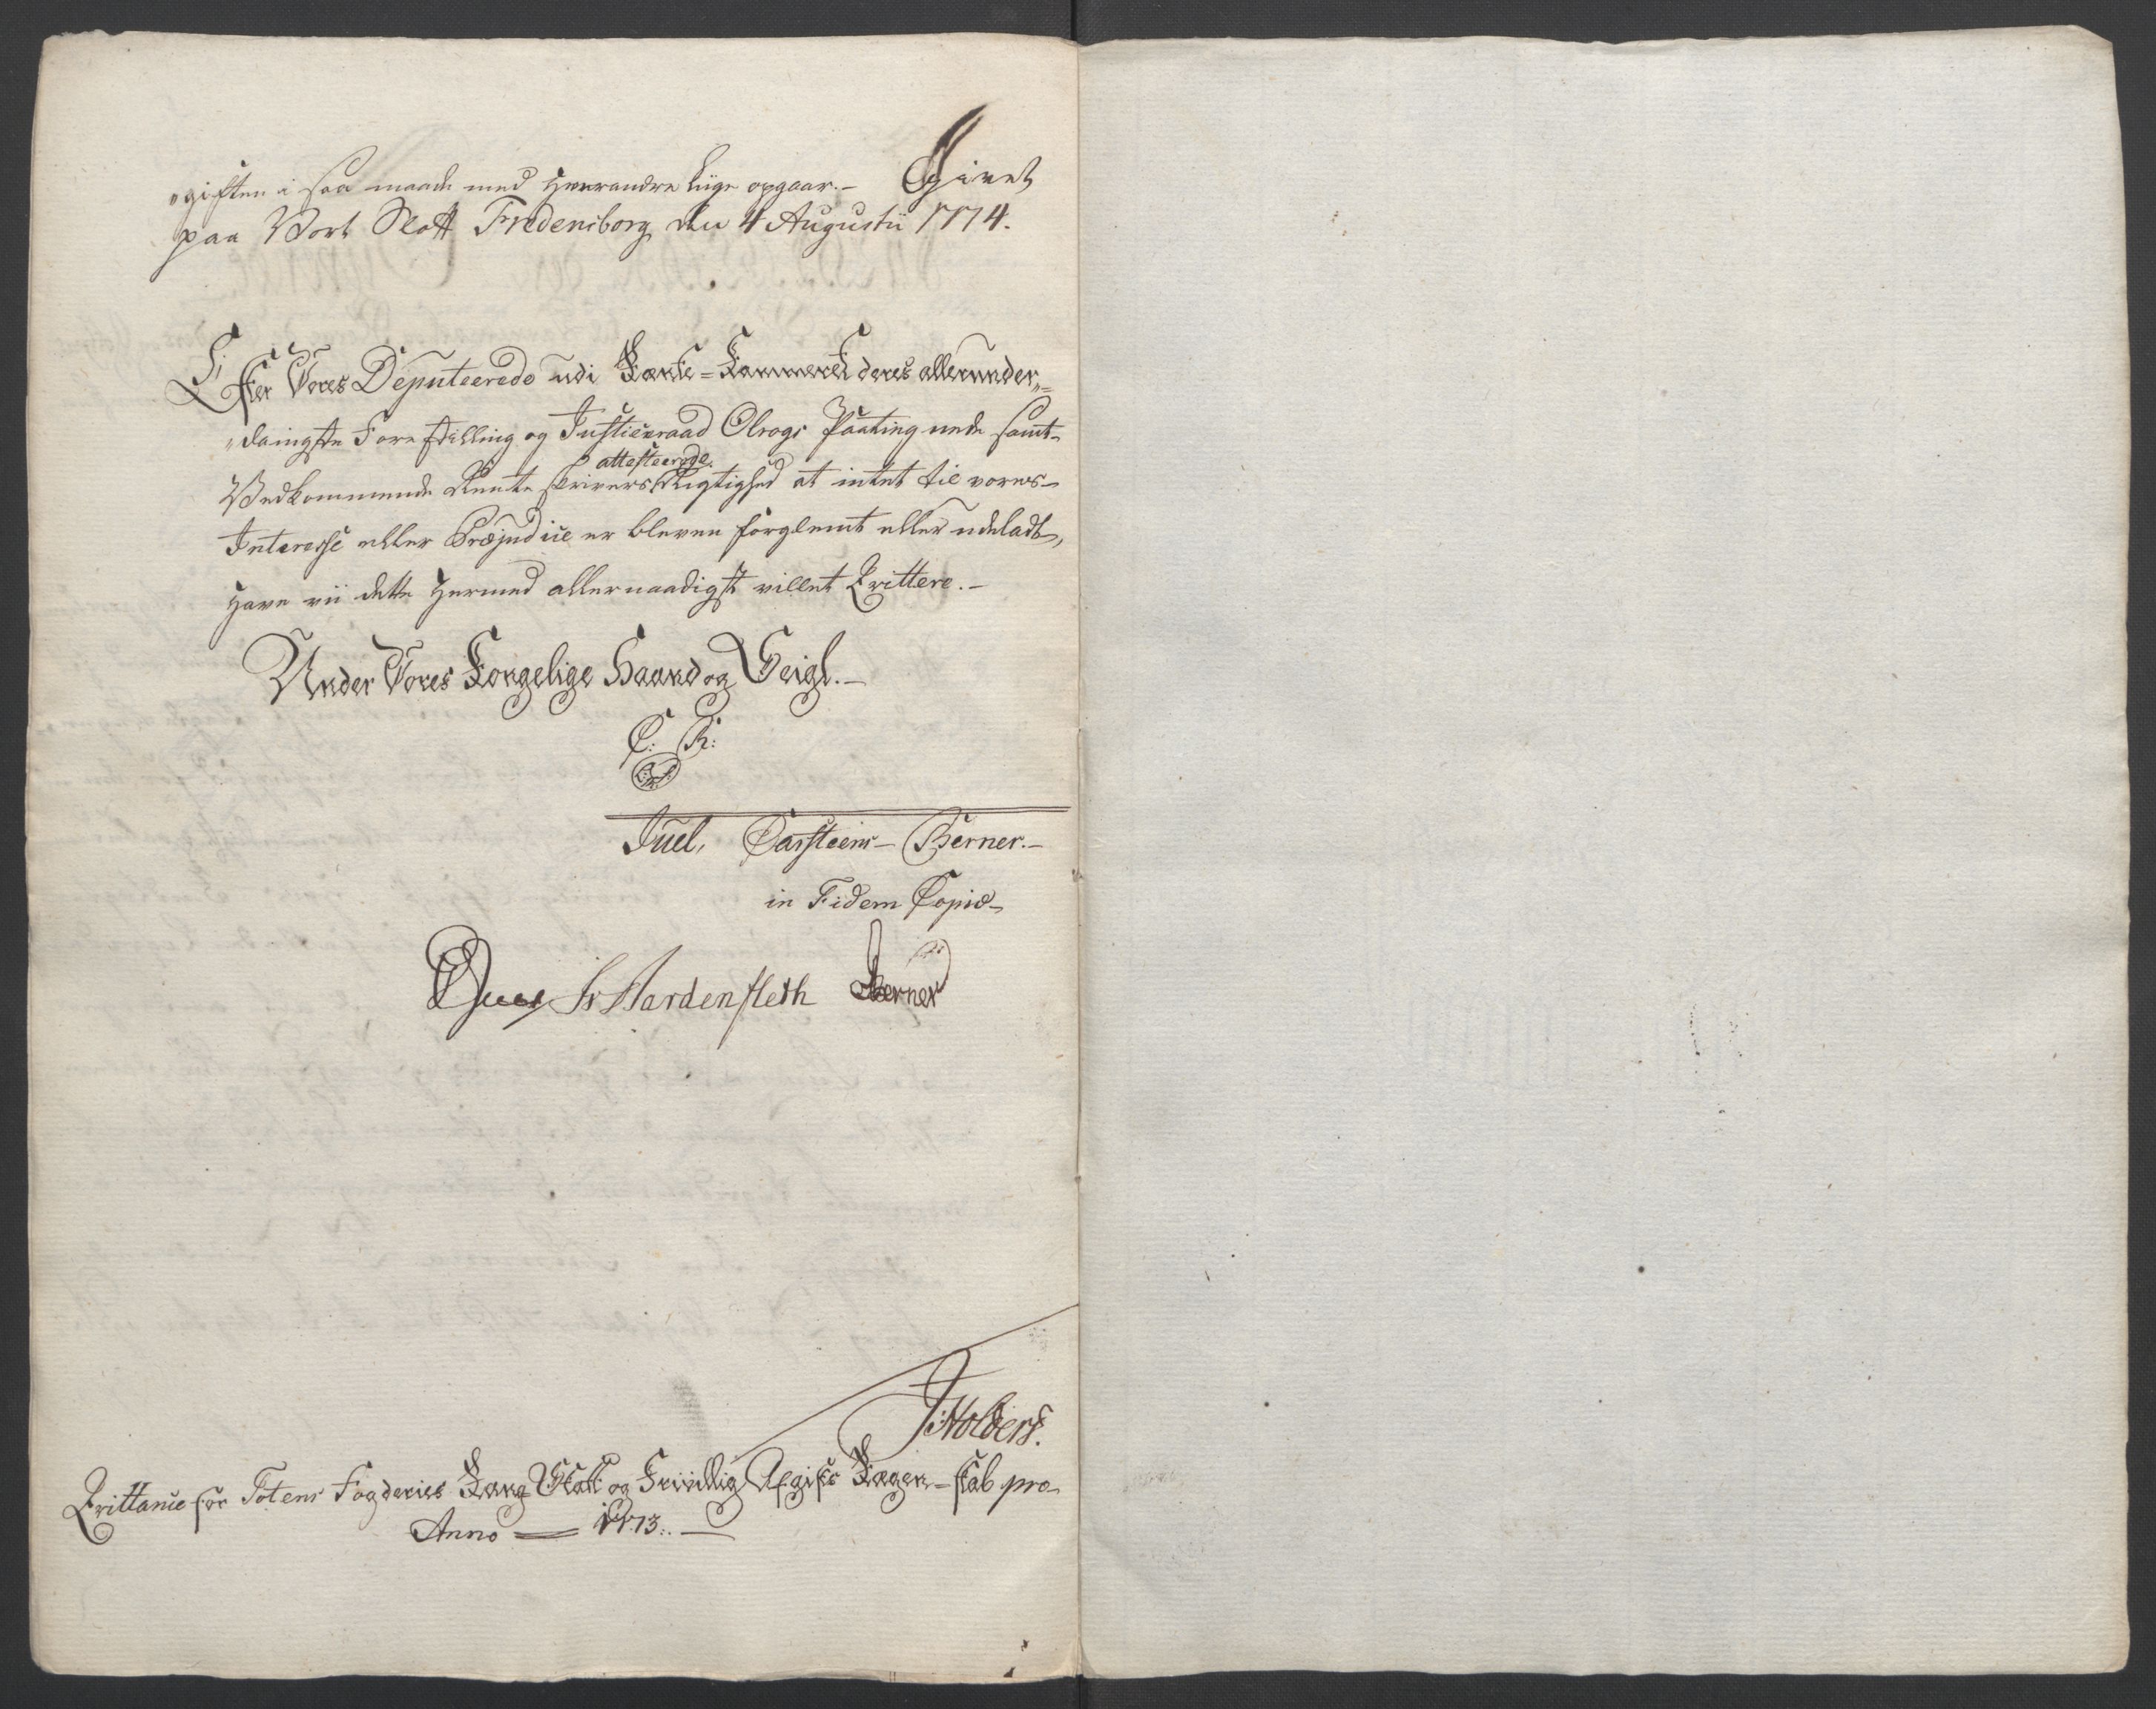 "giften i saa maade med Hverandre liige opgaar.- Givet
paa Vort Slott Fredensborg den 4 Augustii 1774.
Efter Vores Deputeerede udi Rente-Kammeret deres allerunder"=
"danigste Forestilling og Justiceraad Olrogs Paategnede samt-
attesteerede
Vedkommende Rente skrivers Rigtighed at intet til vores-
Interesse eller Præjudice er bleven forglemt eller udeladt,
Have vii dette Hermed allernaadigst villet Qvittere.-
Under Vores Kongelige Haand og Seigl.-
C: R:
Juel, Carsteens- Berner.-
in Fidem Copiæ-
Juel Hardenfleth Berner
Holbers.
Qvittance for Totens Fogderies Kong Skatt og Friivillig Afgifts Regen-skab pro-
Anno = 1773:. -